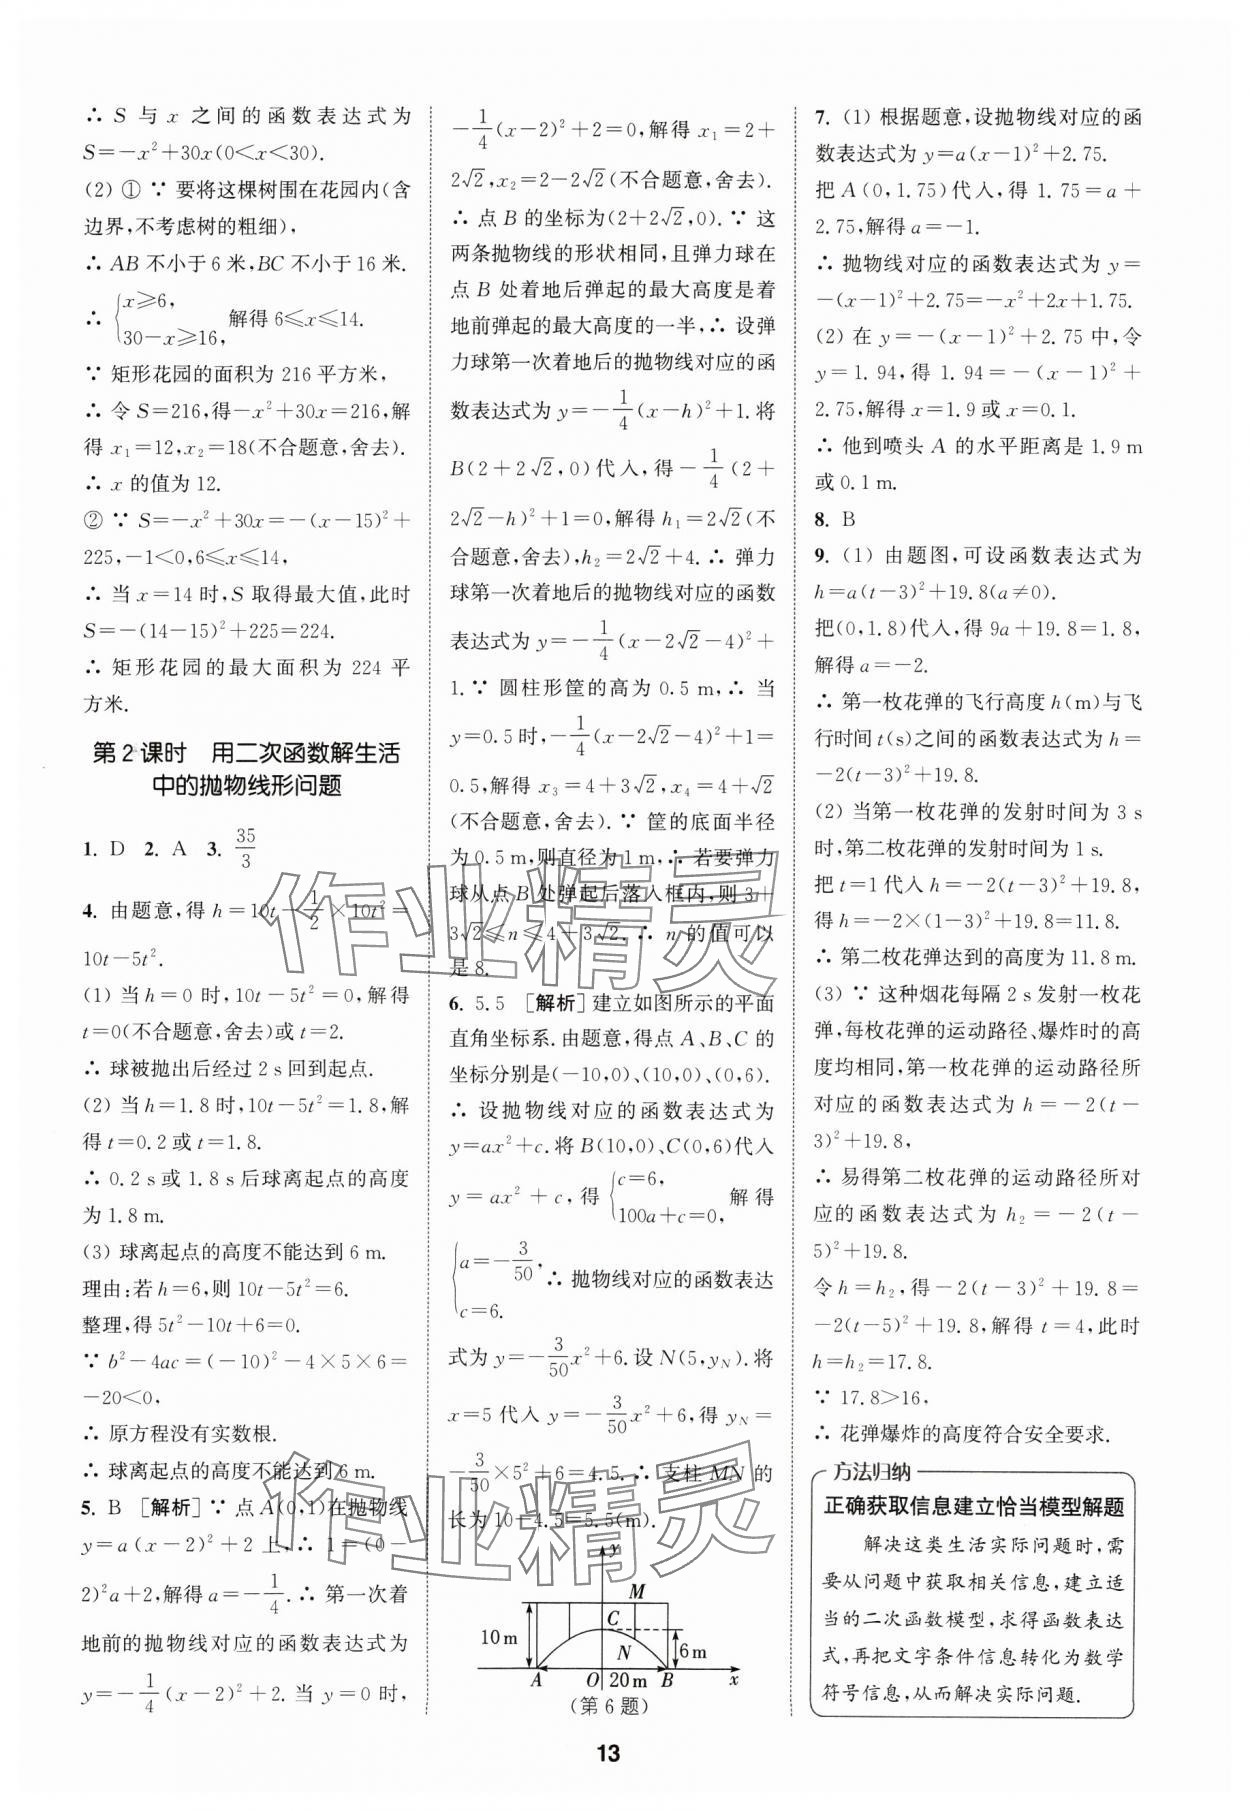 ∴ S 与 x 之间的函数表达式为
S=-x²+30x(0<x<30).
(2) ① ∵ 要将这棵树围在花园内(含
边界,不考虑树的粗细),
∴ AB 不小于 6 米,BC 不小于 16 米.
∴ {x≥6, 30-x≥16, 解得 6≤x≤14.
∵ 矩形花园的面积为 216 平方米,
∴ 令 S=216,得-x²+30x=216,解
得 x₁=12,x₂=18(不合题意,舍去).
∴ x 的值为 12.
② ∵ S=-x²+30x=-(x-15)²+
225,-1<0,6≤x≤14,
∴ 当 x=14 时,S 取得最大值,此时
S=-(14-15)²+225=224.
∴ 矩形花园的最大面积为 224 平
方米.
第2课时 用二次函数解生活
中的抛物线形问题
1. D 2. A 3. 35/3
4. 由题意,得 h=10t-1/2×10t²=
10t-5t².
(1) 当 h=0 时,10t-5t²=0,解得
t=0(不合题意,舍去)或 t=2.
∴ 球被抛出后经过 2 s 回到起点.
(2) 当 h=1.8 时,10t-5t²=1.8,解
得 t=0.2 或 t=1.8.
∴ 0.2 s 或 1.8 s 后球离起点的高度
为 1.8 m.
(3) 球离起点的高度不能达到 6 m.
理由:若 h=6,则 10t-5t²=6.
整理,得 5t²-10t+6=0.
∵ b²-4ac=(-10)²-4×5×6=
-20<0,
∴ 原方程没有实数根.
∴ 球离起点的高度不能达到 6 m.
5. B [解析] ∵ 点 A(0,1)在抛物线
y=a(x-2)²+2 上,∴ 1=(0-
2)²a+2,解得 a=-1/4.∴ 第一次着
地前的抛物线对应的函数表达式为
y=-1/4(x-2)²+2.当 y=0 时,
-1/4(x-2)²+2=0,解得 x₁=2+
2√2,x₂=2-2√2(不合题意,舍去).
∴ 点 B 的坐标为(2+2√2,0).∵ 这
两条抛物线的形状相同,且弹力球在
点 B 处着地后弹起的最大高度是着
地前弹起的最大高度的一半,∴ 设弹
力球第一次着地后的抛物线对应的函
数表达式为 y=-1/4(x-h)²+1.将
B(2+2√2,0)代入,得-1/4(2+
2√2-h)²+1=0,解得 h₁=2√2(不
合题意,舍去),h₂=2√2+4.∴ 弹力
球第一次着地后的抛物线对应的函数
表达式为 y=-1/4(x-2√2-4)²+
1.∵ 圆柱形筐的高为 0.5 m,∴ 当
y=0.5 时,-1/4(x-2√2-4)²+1=
0.5,解得 x₃=4+3√2,x₄=4+√2
(不合题意,舍去).∵ 筐的底面半径
为 0.5 m,则直径为 1 m,∴ 若要弹力
球从点 B 处弹起后落入框内,则 3+
3√2≤n≤4+3√2.∴ n 的值可以
是 8.
6. 5.5 [解析] 建立如图所示的平面
直角坐标系.由题意,得点 A、B、C 的
坐标分别是(-10,0)、(10,0)、(0,6).
∴ 设抛物线对应的函数表达式为
y=ax²+c.将 B(10,0)、C(0,6)代入
y=ax²+c,得 {c=6, 100a+c=0, 解得
{a=-3/50, c=6. ∴ 抛物线对应的函数表达
式为 y=-3/50x²+6.设 N(5,yN).将
x=5 代入 y=-3/50x²+6,得 yN=
-3/50×5²+6=4.5.∴ 支柱 MN 的
长为 10-4.5=5.5(m).
y
M
10 m
C
N
6 m
A O 20 m B x
(第 6 题)
7. (1) 根据题意,设抛物线对应的函
数表达式为 y=a(x-1)²+2.75.
把 A(0,1.75)代入,得 1.75=a+
2.75,解得 a=-1.
∴ 抛物线对应的函数表达式为 y=
-(x-1)²+2.75=-x²+2x+1.75.
(2) 在 y=-(x-1)²+2.75 中,令
y=1.94,得 1.94=-(x-1)²+
2.75,解得 x=1.9 或 x=0.1.
∴ 他到喷头 A 的水平距离是 1.9 m
或 0.1 m.
8. B
9. (1) 由题图,可设函数表达式为
h=a(t-3)²+19.8(a≠0).
把(0,1.8)代入,得 9a+19.8=1.8,
解得 a=-2.
∴ 第一枚花弹的飞行高度 h(m)与飞
行时间 t(s)之间的函数表达式为 h=
-2(t-3)²+19.8.
(2) 当第一枚花弹的发射时间为 3 s
时,第二枚花弹的发射时间为 1 s.
把 t=1 代入 h=-2(t-3)²+19.8,
得 h=-2×(1-3)²+19.8=11.8.
∴ 第二枚花弹达到的高度为 11.8 m.
(3) ∵ 这种烟花每隔 2 s 发射一枚花
弹,每枚花弹的运动路径、爆炸时的高
度均相同,第一枚花弹的运动路径所
对应的函数表达式为 h=-2(t-
3)²+19.8,
∴ 易得第二枚花弹的运动路径所对
应的函数表达式为 h₂=-2(t-
5)²+19.8.
令 h=h₂,得-2(t-3)²+19.8=
-2(t-5)²+19.8,解得 t=4,此时
h=h₂=17.8.
∵ 17.8>16,
∴ 花弹爆炸的高度符合安全要求.
方法归纳
正确获取信息建立恰当模型解题
解决这类生活实际问题时,需
要从问题中获取相关信息,建立适
当的二次函数模型,求得函数表达
式,再把文字条件信息转化为数学
符号信息,从而解决实际问题.
13
作业精灵
作业精灵